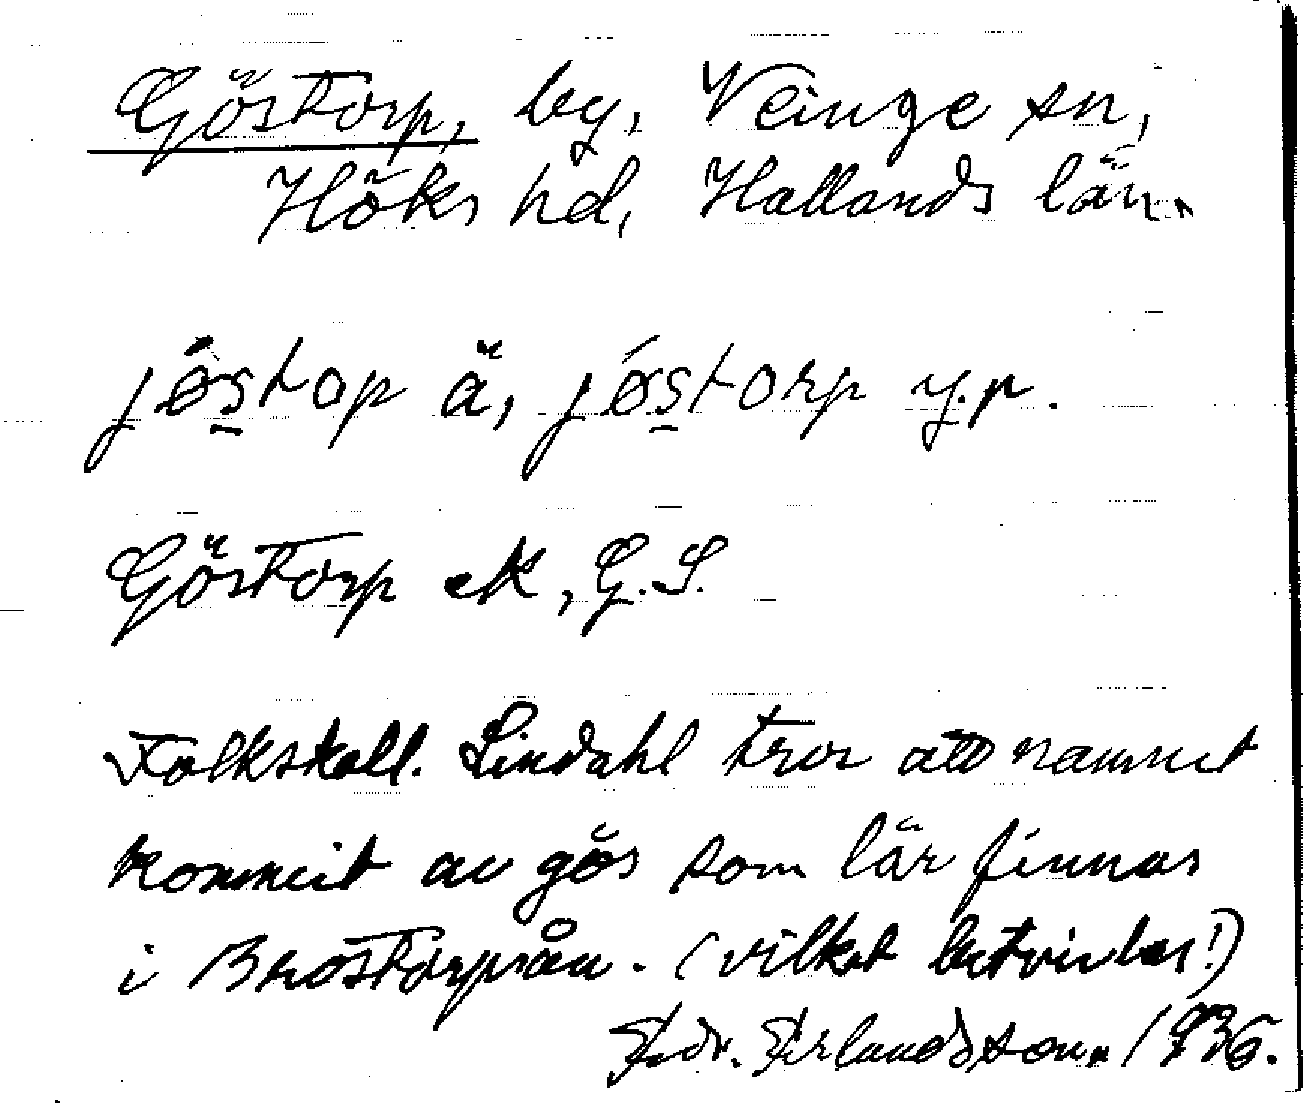 Göstorp, by, Veinge sn,
Höks hd, Hallands län.
jöstop ä, jöstorp y.p.
Göstorp ek, G.S.
Folkskoll. Lindahl tror att namnet
kommit av gös som lär finnas
i Brostorpsån. (vilket betvivlas!)
Erlandsson. 1936.